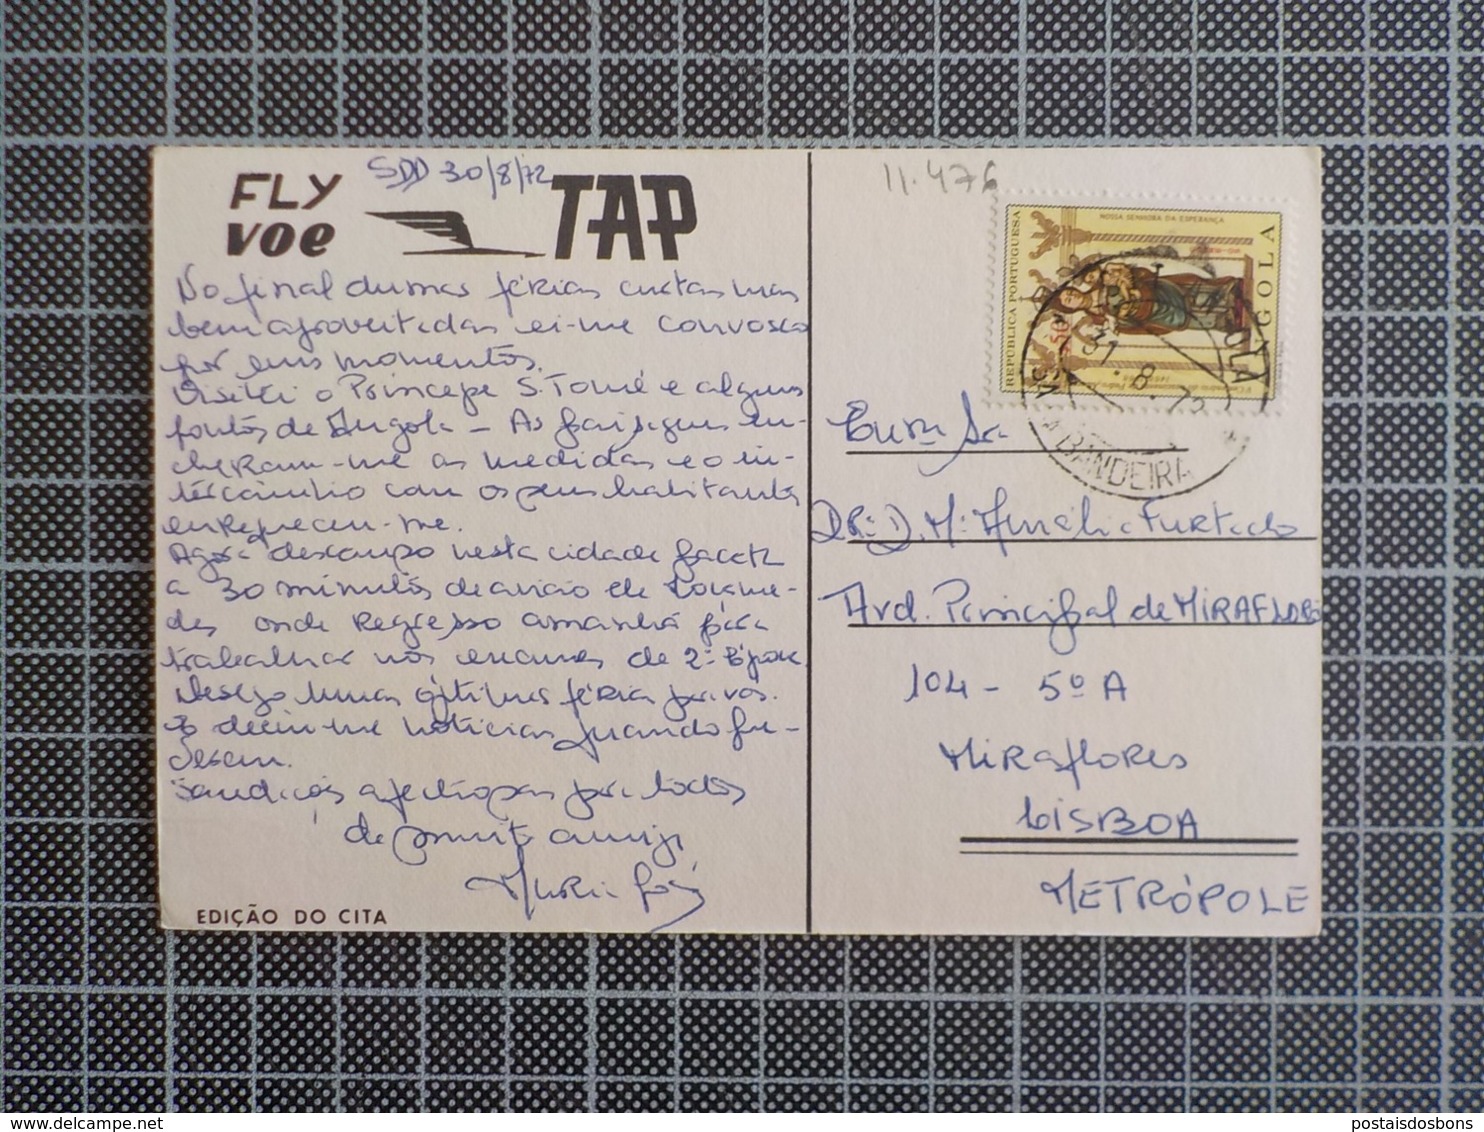 SDD 30/8/72
FLY
VOE
TAP
No final dumas férias curtas mas
bem aproveitadas ei-me convosco
por uns momentos.
Visitei o Príncipe S. Tomé e alguns
pontos de Angola - As paisagens en-
cheram-me as medidas e o in-
tercâmbio com os seus habitantes
enriqueceu-me.
Agora descanso nesta cidade
a 30 minutos de avião de
onde regresso amanhã para
trabalhar nos exames de 2ª época.
Desejo umas óptimas férias para vós.
notícias quando pu-
deram.
Saudações afectuosas para todos
da muito amiga
Maria José
EDIÇÃO DO CITA
11.476
NOSSA SENHORA DA ESPERANÇA
REPÚBLICA PORTUGUESA
ANGOLA
31.8.72
BANDEIRA
Exma Sra
DRª D. Mª Amélia Furtado
Avd. Principal de MIRAFLORES
104 - 5º A
MIRAFLORES
LISBOA
METRÓPOLE
postaisdosbons